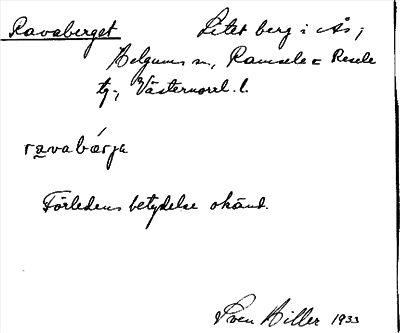 Ravaberget Litet berg i Ås,
Helgums sn, Ramsele o Resele
tg., Västernorrl. l.
ravabǽrjə
Förledens betydelse okänd.
Sven Hiller 1933